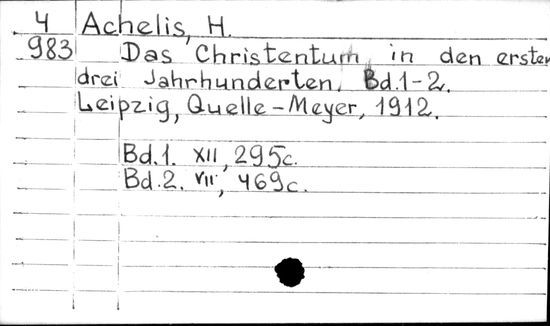 4 Achelis, H.
983 Das Christentum in den ersten
drei Jahrhunderten, Bd.1-2.
Leipzig, Quelle-Meyer, 1912.
Bd.1. XII, 295c.
Bd.2. VII, 469c.